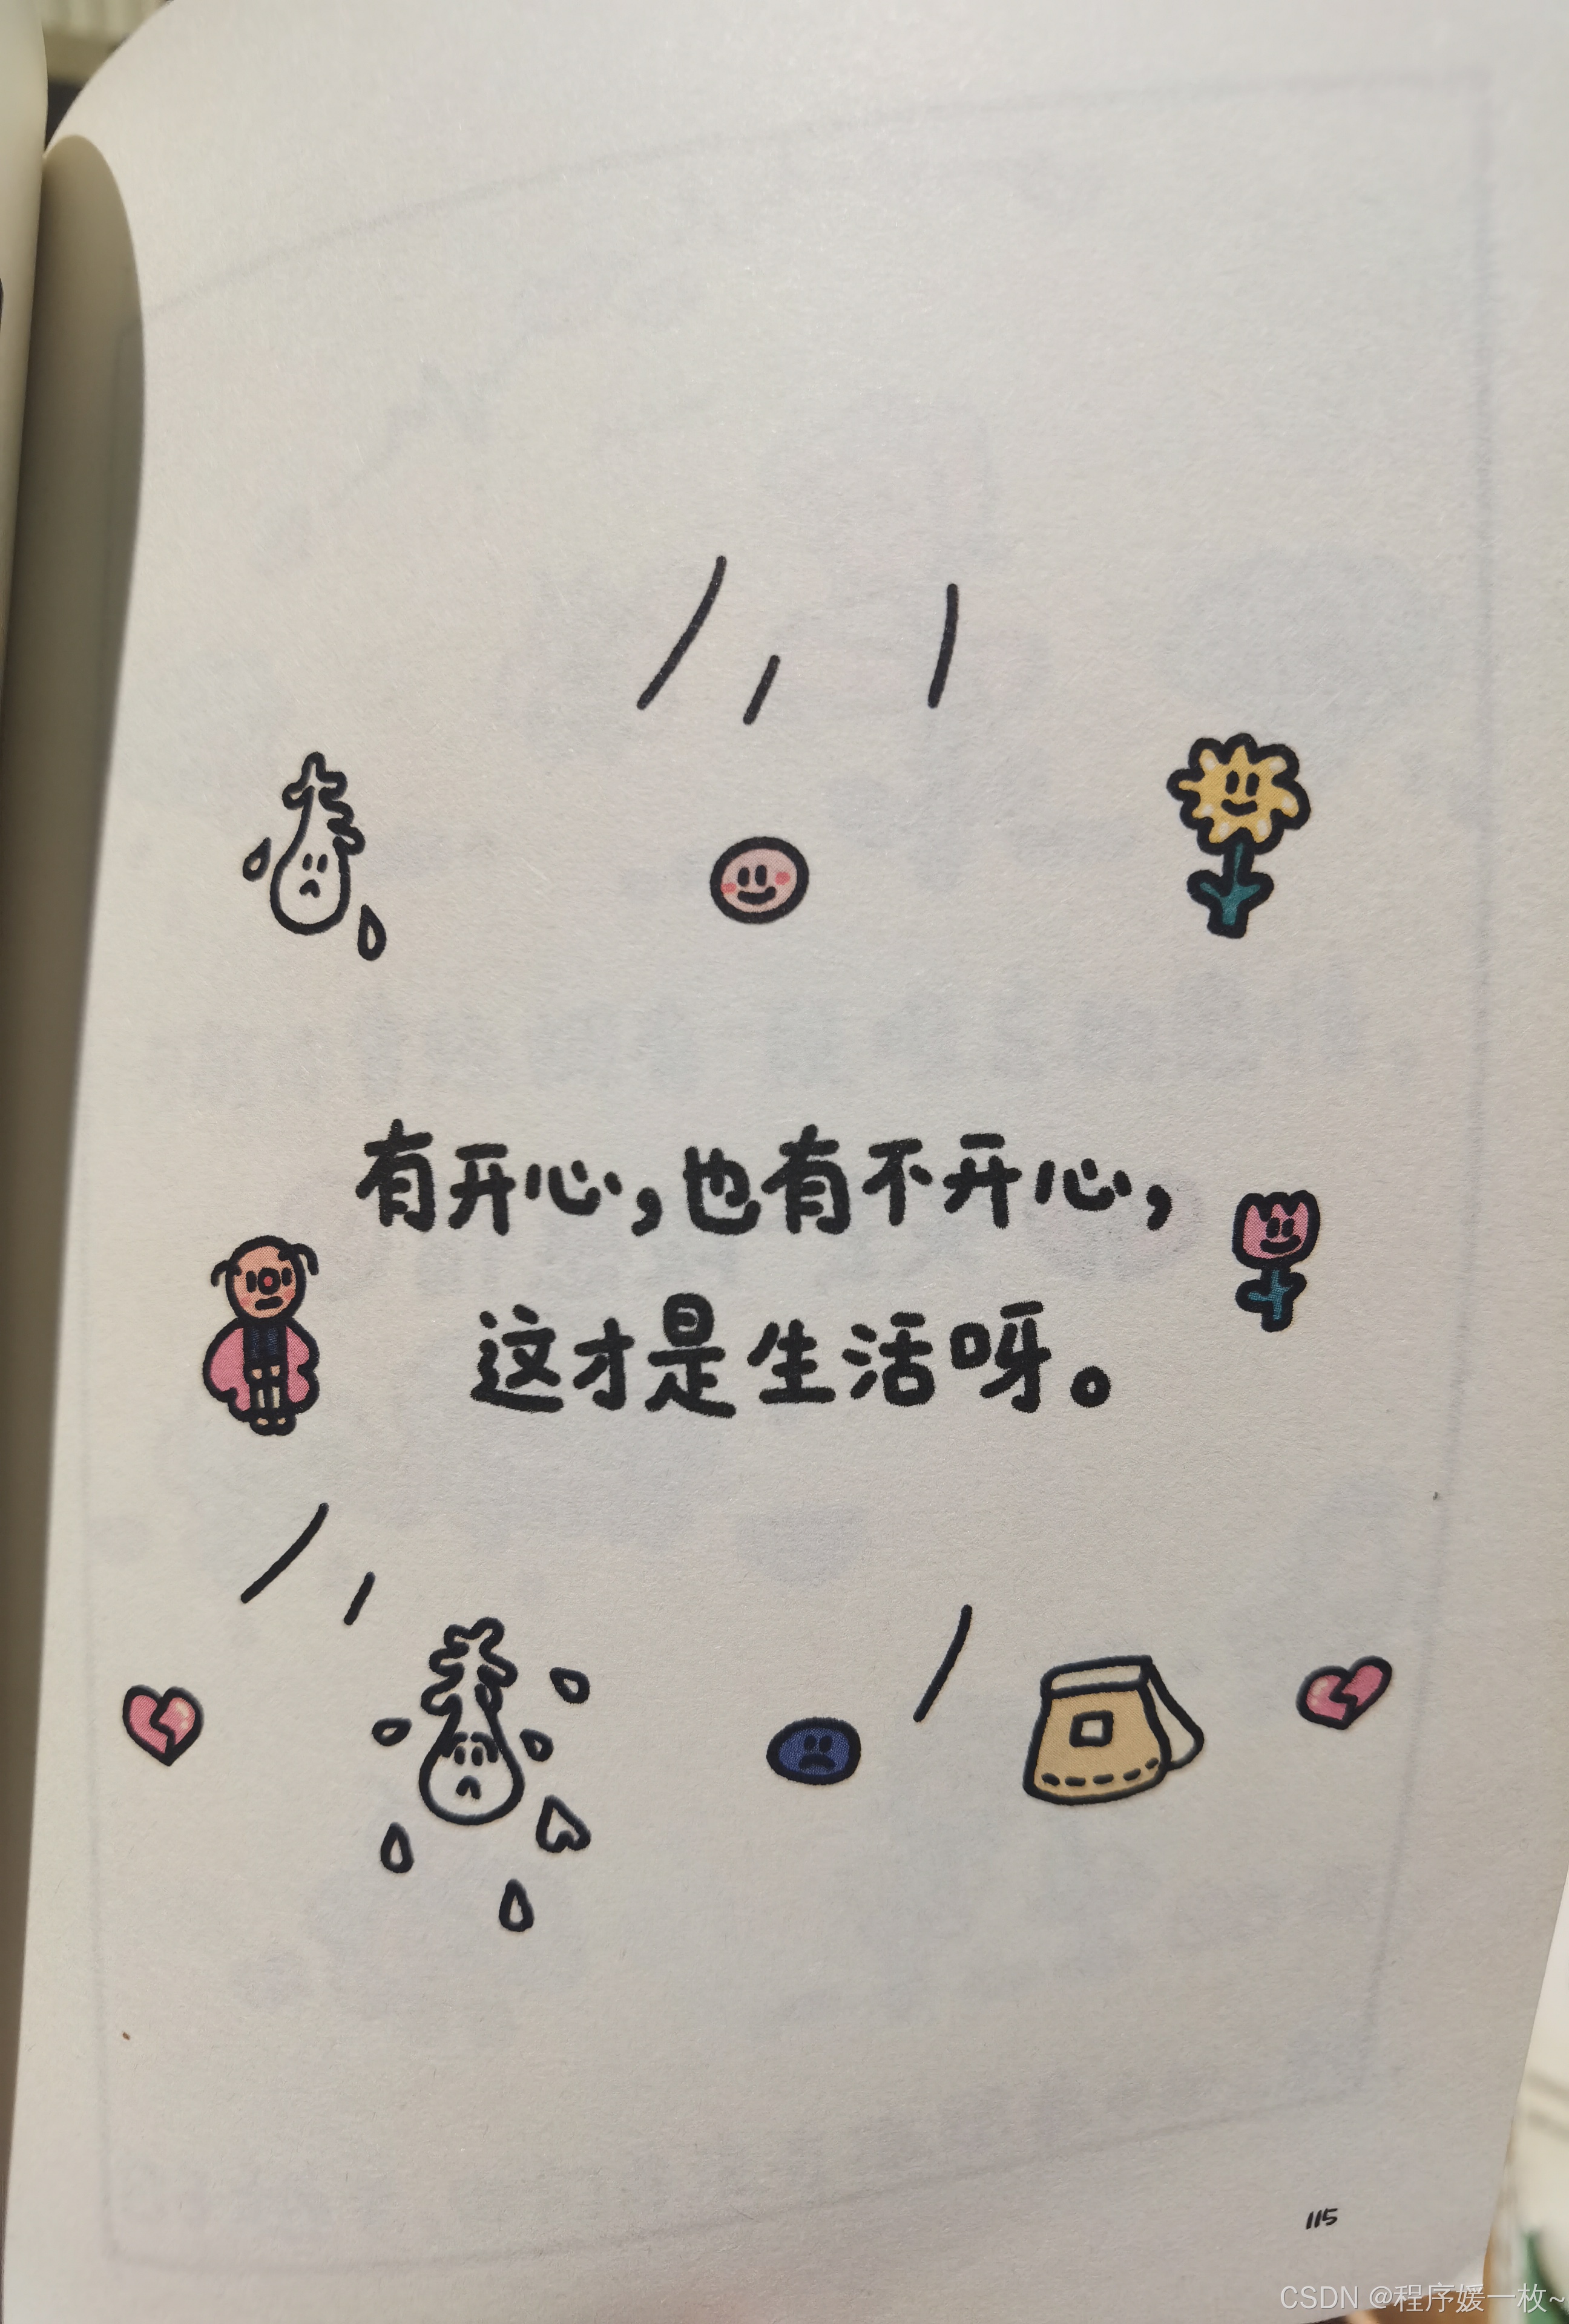 有开心，也有不开心，
这才是生活呀。
115
CSDN @程序媛一枚~